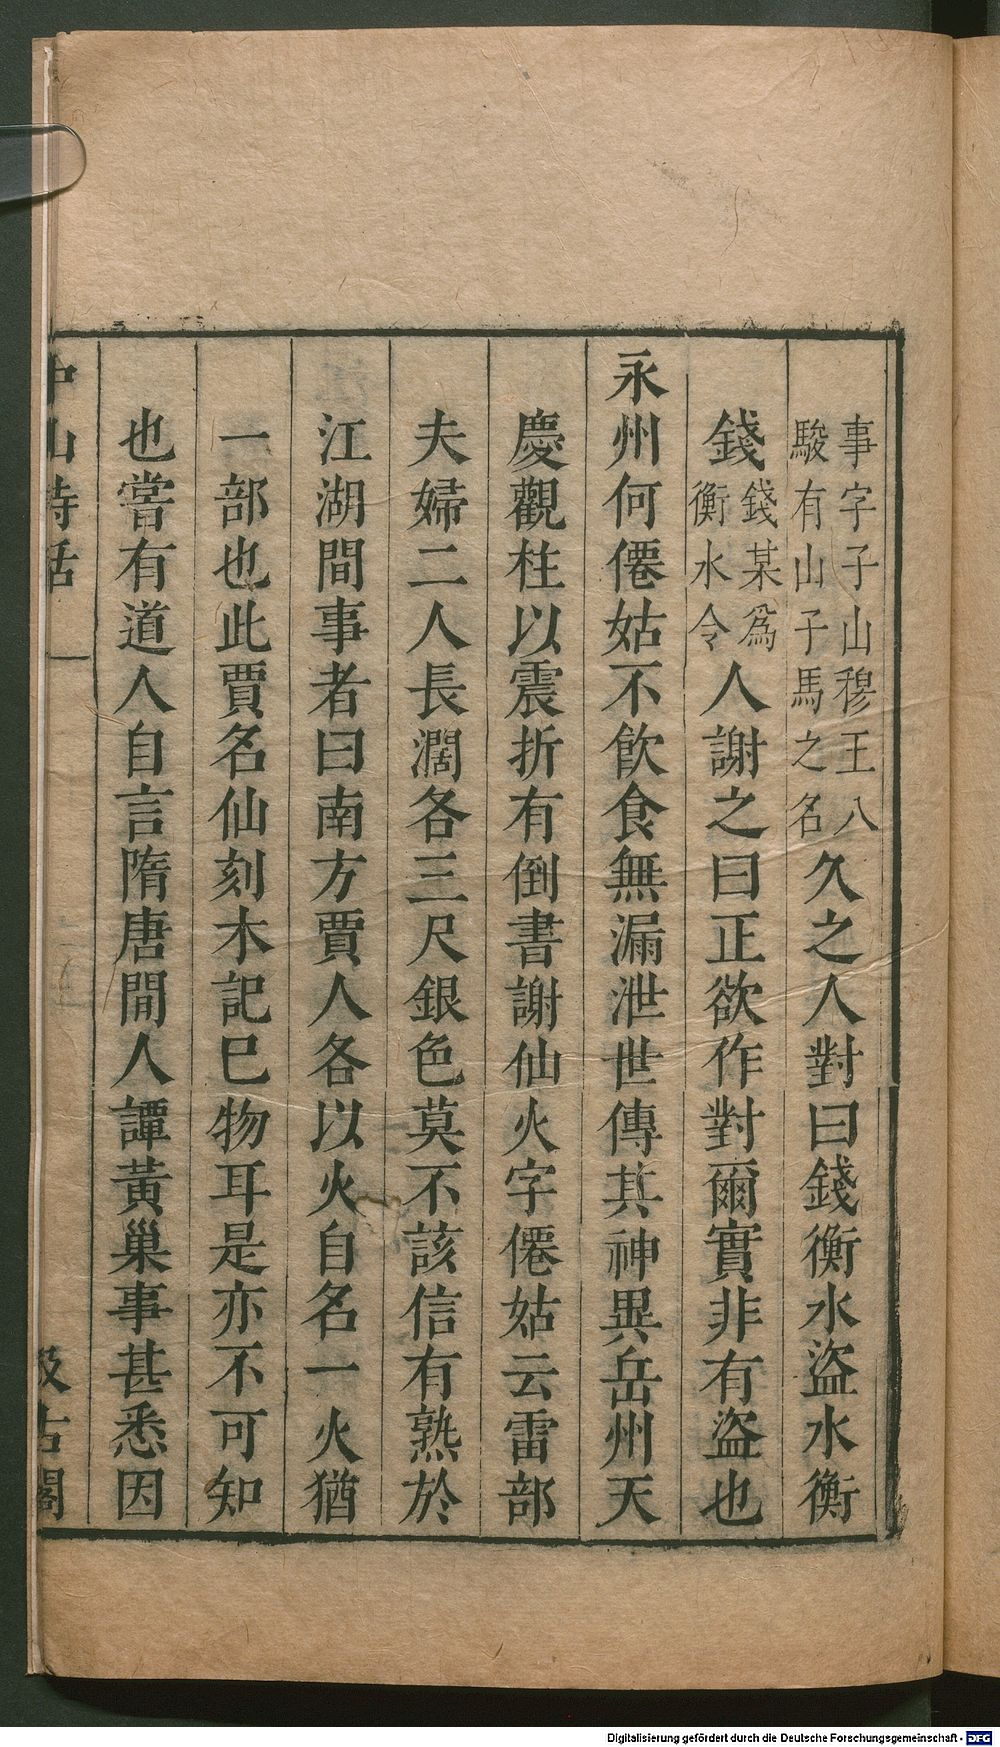 事字子山穆王八
駿有山子馬之名久之人對曰錢衡水盜水衡
錢錢某爲
衡水令人謝之曰正欲作對爾實非有盜也
永州何僊姑不飮食無漏泄世傳其神異岳州天
慶觀柱以震折有倒書謝仙火字僊姑云雷部
夫婦二人長濶各三尺銀色莫不該信有熟於
江湖間事者曰南方賈人各以火自名一火猶
一部也此賈名仙刻木記巳物耳是亦不可知
也嘗有道人自言隋唐間人譚黃巢事甚悉因
中山詩話 一 汲古閣
Digitalisierung gefördert durch die Deutsche Forschungsgemeinschaft - DFG